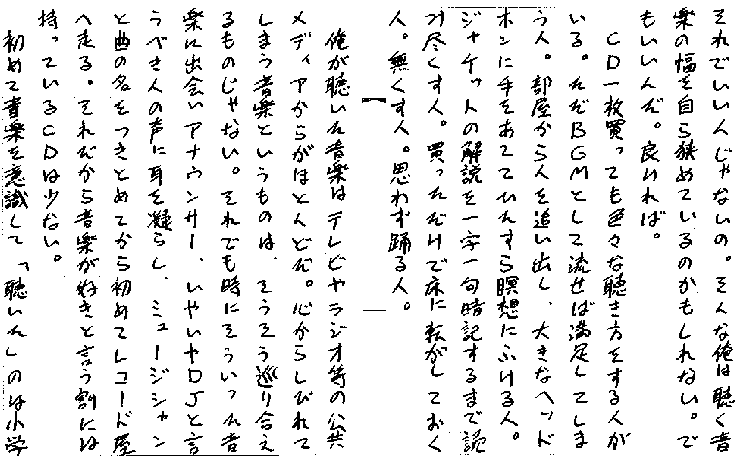 それでいいんじゃないの。そんな俺は聴く音
楽の幅を自ら狭めているのかもしれない。で
もいいんだ。良ければ。
　CD一枚買っても色々な聴き方をする人が
いる。ただBGMとして流せば満足してしま
う人。部屋から人を追い出し、大きなヘッド
ホンに手をあててひたすら瞑想にふける人。
ジャケットの解説を一字一句暗記するまで読
み尽くす人。買っただけで床に転がしておく
人。無くす人。思わず踊る人。
　俺が聴いた音楽はテレビやラジオ等の公共
メディアからがほとんどだ。心からしびれて
しまう音楽というものは、そうそう巡り合え
るものじゃない。それでも時にそういった音
楽に出会いアナウンサー、いやいやDJと言
うべき人の声に耳を凝らし、ミュージシャン
と曲の名をつきとめてから初めてレコード屋
へ走る。それだから音楽が好きと言う割には
持っているCDは少ない。
　初めて音楽を意識して「聴いた」のは小学